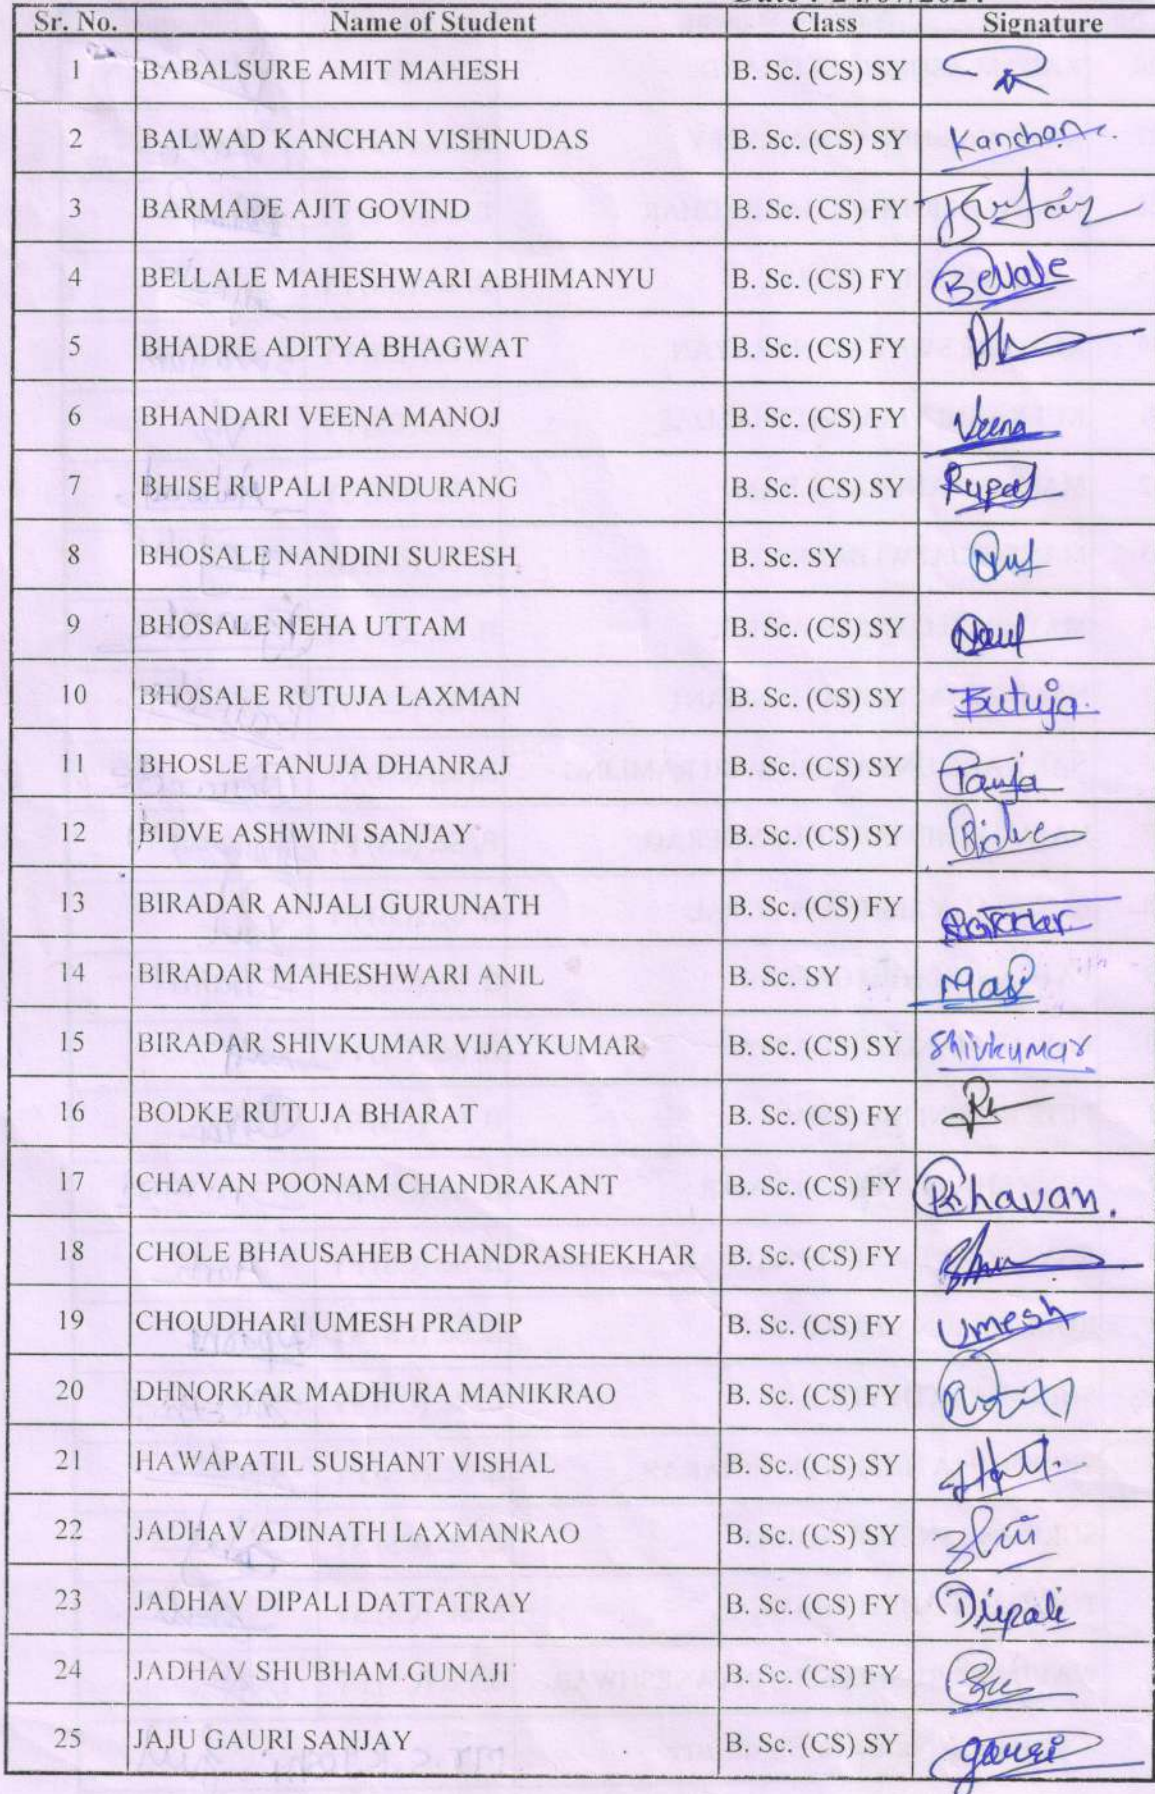 Sr. No. Name of Student Class Signature
1 BABALSURE AMIT MAHESH B. Sc. (CS) SY
2 BALWAD KANCHAN VISHNUDAS B. Sc. (CS) SY Kanchan.
3 BARMADE AJIT GOVIND B. Sc. (CS) FY
4 BELLALE MAHESHWARI ABHIMANYU B. Sc. (CS) FY Bellale
5 BHADRE ADITYA BHAGWAT B. Sc. (CS) FY
6 BHANDARI VEENA MANOJ B. Sc. (CS) FY Veena
7 BHISE RUPALI PANDURANG B. Sc. (CS) SY Rupali
8 BHOSALE NANDINI SURESH B. Sc. SY
9 BHOSALE NEHA UTTAM B. Sc. (CS) SY
10 BHOSALE RUTUJA LAXMAN B. Sc. (CS) SY Butuja.
11 BHOSLE TANUJA DHANRAJ B. Sc. (CS) SY
12 BIDVE ASHWINI SANJAY B. Sc. (CS) SY Bidve
13 BIRADAR ANJALI GURUNATH B. Sc. (CS) FY
14 BIRADAR MAHESHWARI ANIL B. Sc. SY
15 BIRADAR SHIVKUMAR VIJAYKUMAR B. Sc. (CS) SY Shivkumar
16 BODKE RUTUJA BHARAT B. Sc. (CS) FY
17 CHAVAN POONAM CHANDRAKANT B. Sc. (CS) FY
18 CHOLE BHAUSAHEB CHANDRASHEKHAR B. Sc. (CS) FY
19 CHOUDHARI UMESH PRADIP B. Sc. (CS) FY Umesh
20 DHNORKAR MADHURA MANIKRAO B. Sc. (CS) FY
21 HAWAPATIL SUSHANT VISHAL B. Sc. (CS) SY
22 JADHAV ADINATH LAXMANRAO B. Sc. (CS) SY
23 JADHAV DIPALI DATTATRAY B. Sc. (CS) FY Dipali
24 JADHAV SHUBHAM GUNAJI B. Sc. (CS) FY
25 JAJU GAURI SANJAY B. Sc. (CS) SY gauri